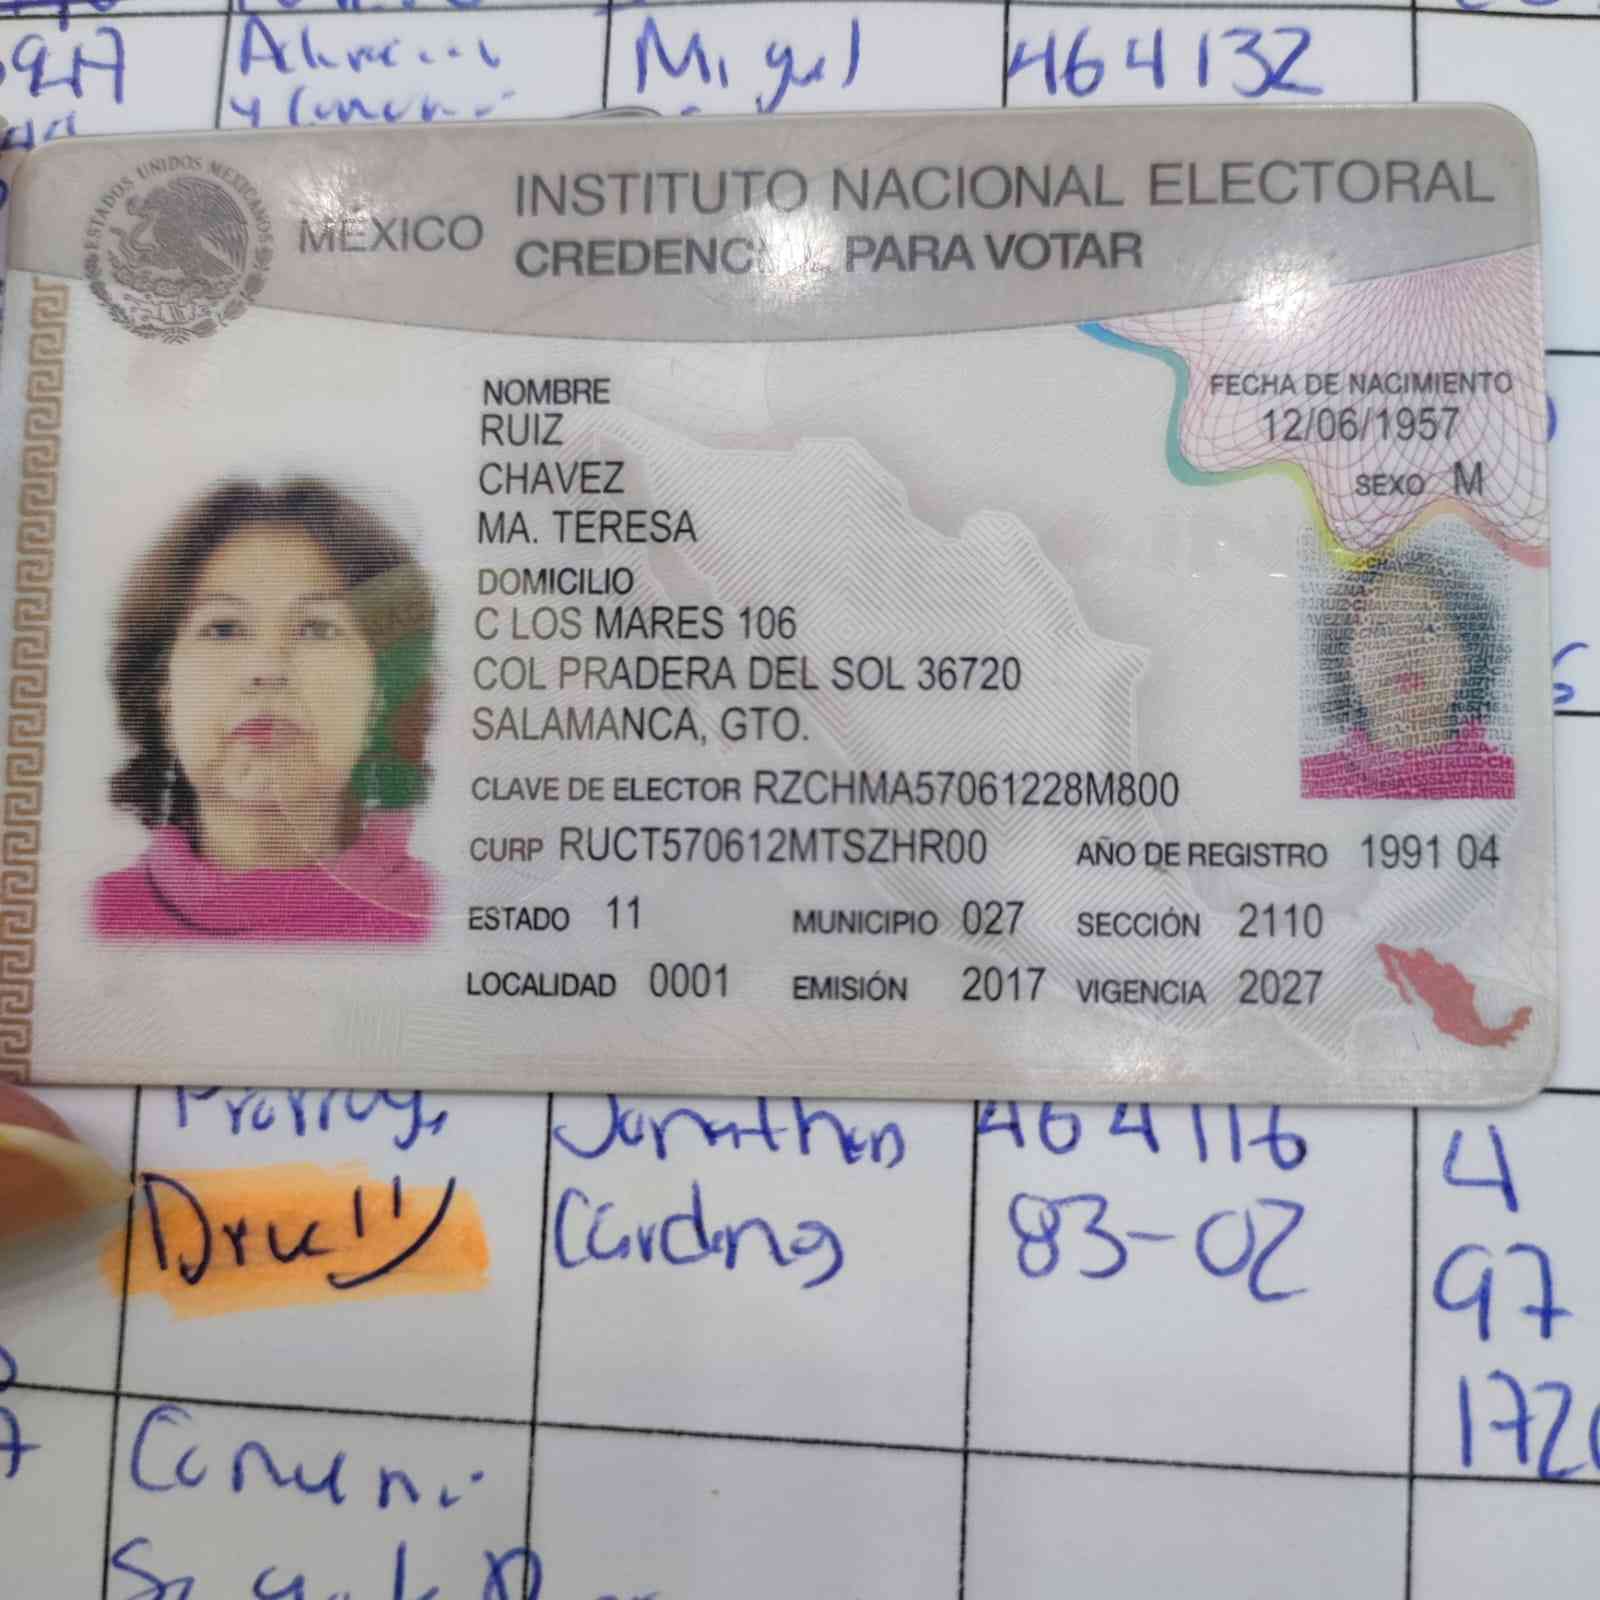 Miguel
464132
ESTADOS UNIDOS MEXICANOS
MÉXICO
INSTITUTO NACIONAL ELECTORAL
PARA VOTAR
NOMBRE
RUIZ
CHAVEZ
MA. TERESA
FECHA DE NACIMIENTO
12/06/1957
SEXO M
DOMICILIO
C LOS MARES 106
COL PRADERA DEL SOL 36720
SALAMANCA, GTO.
CLAVE DE ELECTOR RZCHMA57061228M800
CURP RUCT570612MTSZHR00 AÑO DE REGISTRO 1991 04
ESTADO 11 MUNICIPIO 027 SECCIÓN 2110
LOCALIDAD 0001 EMISIÓN 2017 VIGENCIA 2027
Jonathan 464116 4
83-02 97